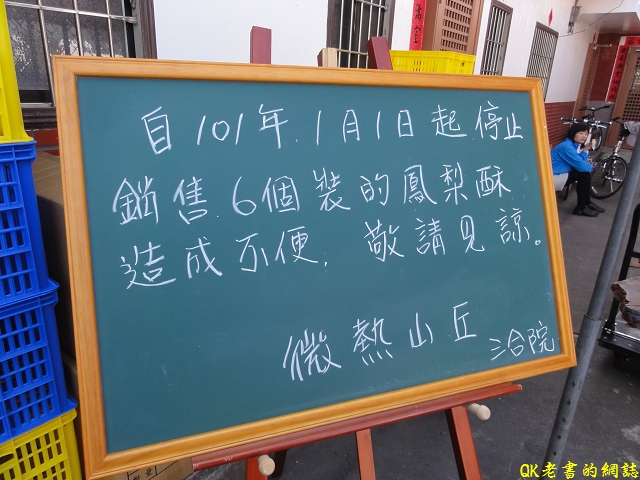 自101年.1月1日起停止
銷售.6個裝的鳳梨酥
造成不便,敬請見諒。
微熱山丘
三合院
QK老書的網誌